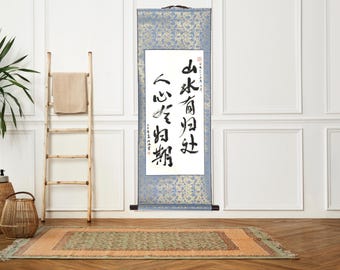 山水有归处
人心无归期